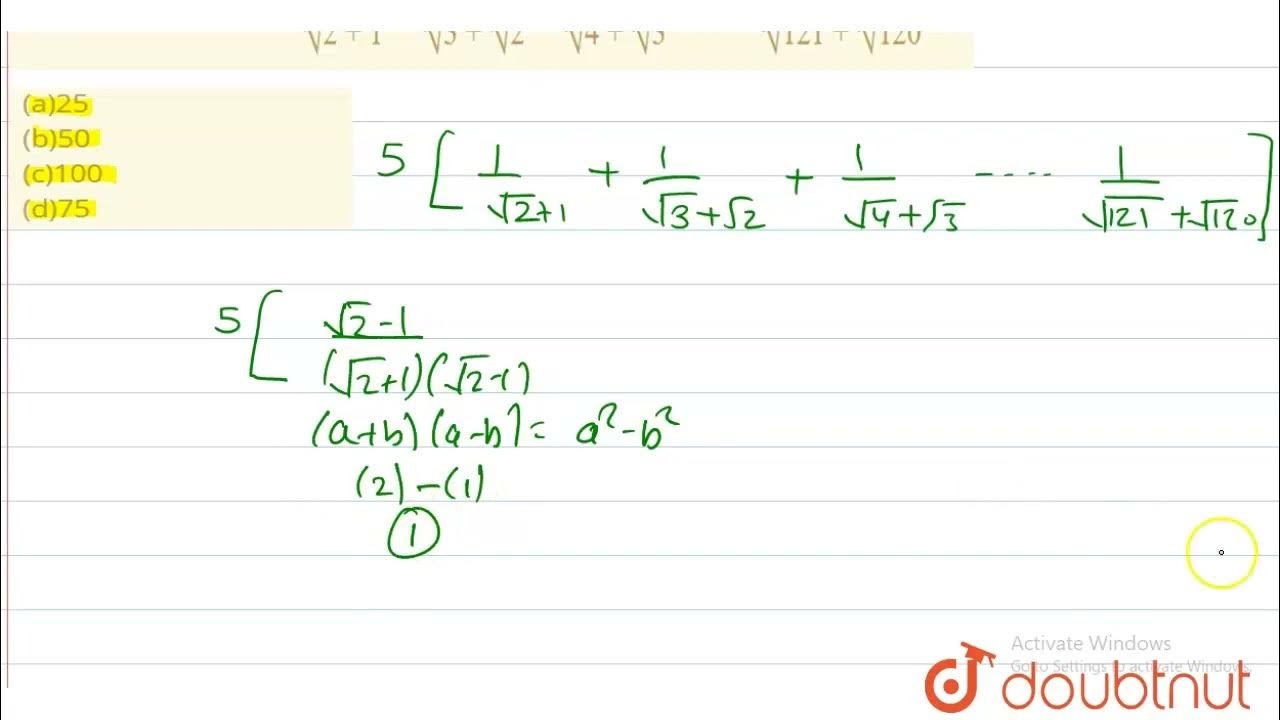 √2 + 1 √3 + √2 √4 + √3 √121 + √120
(a)25
(b)50
(c)100
(d)75
5 [ 1/(√2+1) + 1/(√3+√2) + 1/(√4+√3) ----.. 1/(√121+√120) ]
5 [ (√2-1)/((√2+1)(√2-1))
(a+b)(a-b)= a²-b²
(2)-(1)
1
Activate Windows
Go to Settings to activate Windows.
doubtnut